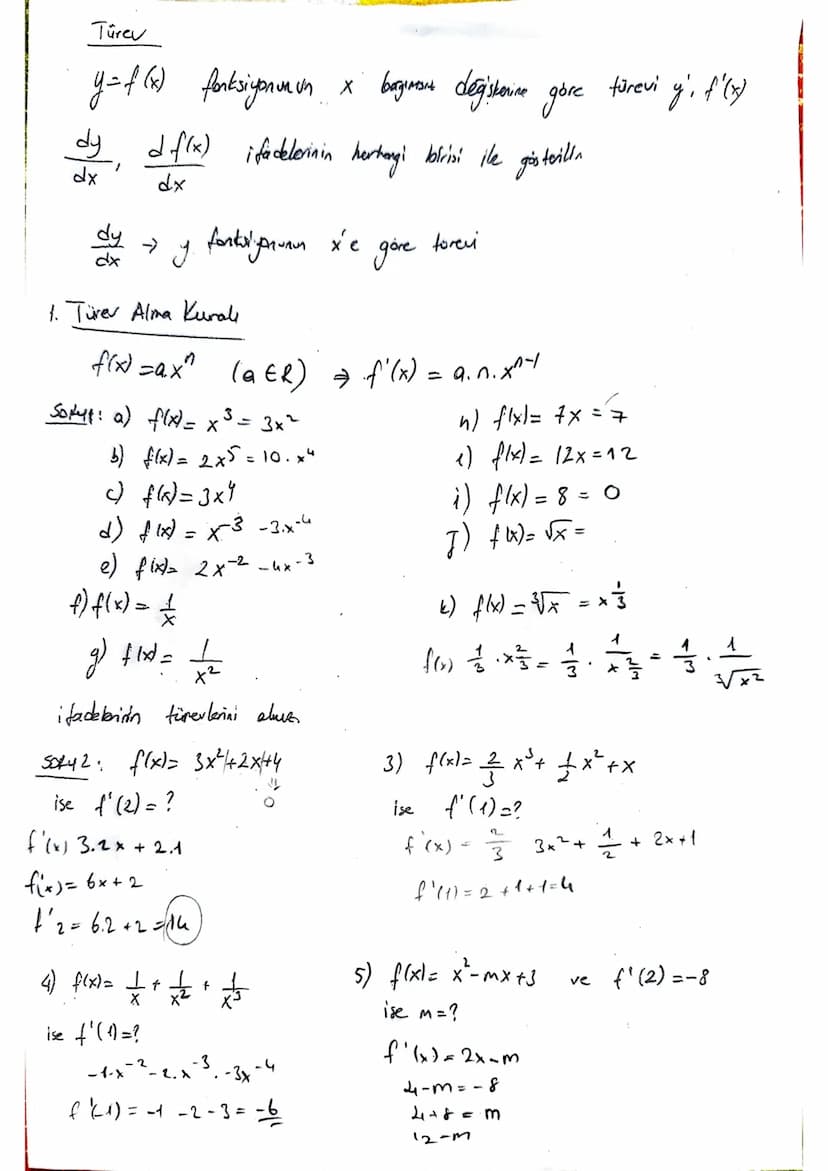 Türev
y=f(x) fonksiyonunun x bağımsız değişkenine göre türevi y', f'(x)
dy/dx, d f(x)/dx ifadelerinin herhangi birisi ile gösterilir
dy/dx → y fonksiyonunun x'e göre türevi
1. Türev Alma Kuralı
f(x) = ax^n (a ∈ R) ⇒ f'(x) = a.n.x^n-1
Soru1: a) f(x) = x^3 = 3x^2
b) f(x) = 2x^5 = 10.x^4
c) f(x) = 3x^4
d) f(x) = x^-3 -3.x^-4
e) f(x) = 2x^-2 -4x^-3
f) f(x) = 1/x
g) f(x) = 1/x^2
h) f(x) = 7x = 7
ı) f(x) = 12x = 12
i) f(x) = 8 = 0
j) f(x) = √x =
k) f(x) = ∛x = x^1/3
f(x) 1/3 . x^2/3 = 1/3 . 1/x^2/3 = 1/3 . 1/∛x^2
ifadelerinin türevlerini alınız
Soru 2: f(x) = 3x^2+2x+4
⇓
0
ise f'(2) = ?
f'(x) 3.2x + 2.1
f'(x) = 6x + 2
f'2 = 6.2 + 2 = 14
3) f(x) = 2/3 x^3 + 1/2 x^2 + x
ise f'(1) = ?
f'(x) = 2/3 3x^2 + 1/2 + 2x+1
f'(1) = 2 + 1 + 1 = 4
4) f(x) = 1/x + 1/x^2 + 1/x^3
ise f'(1) = ?
-1.x^-2 -2.x^-3 . -3x^-4
f'(-1) = -1 -2 -3 = -6
5) f(x) = x^2 - mx + 3 ve f'(2) = -8
ise m = ?
f'(x) = 2x - m
4 - m = -8
4 + 8 = m
12 - m